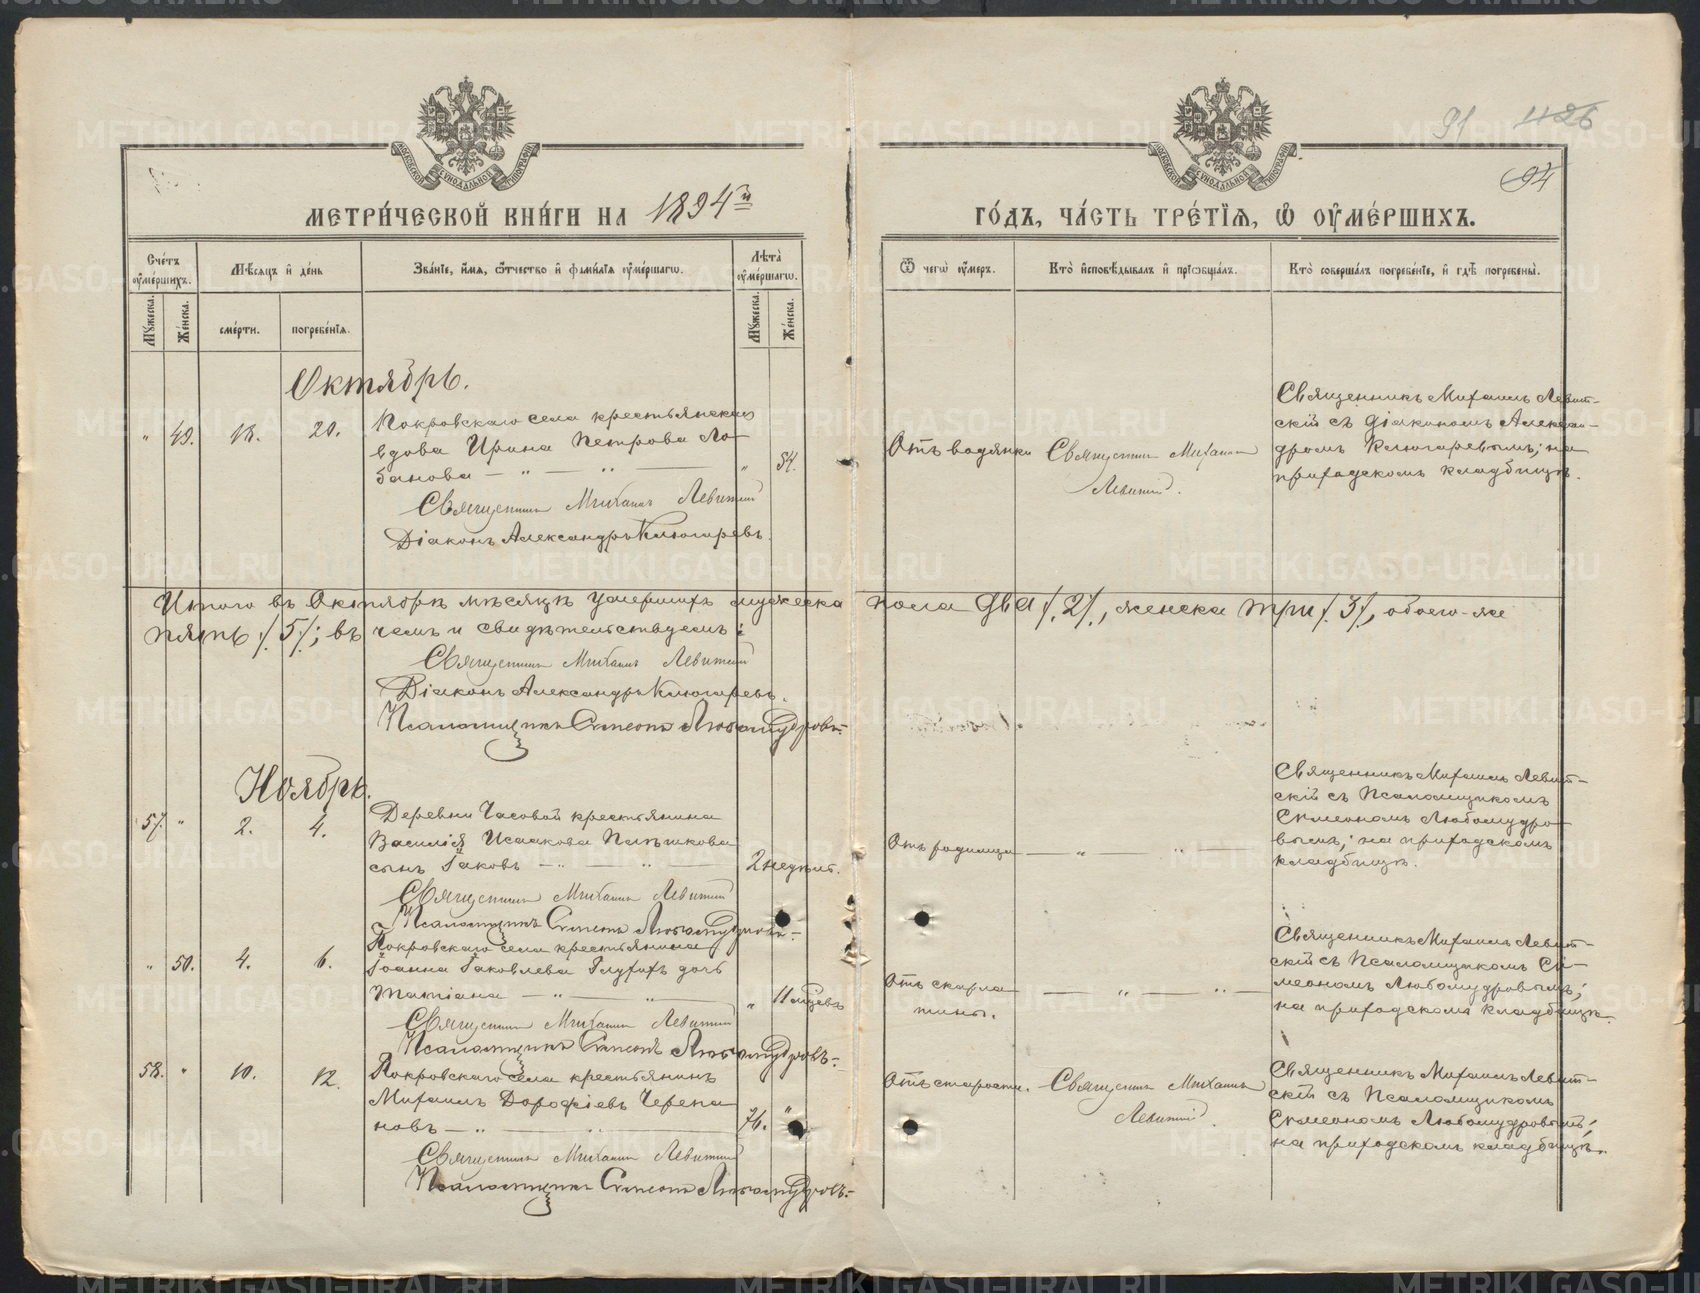 91 1126
94
МОСКОВСКОЙ СѴНОДАЛЬНОЙ ТИПОГРАФІИ
МОСКОВСКОЙ СѴНОДАЛЬНОЙ ТИПОГРАФІИ
МЕТРИ́ЧЕСКОЙ КНИ́ГИ НА 1894й
ГО́ДЪ, ЧА́СТЬ ТРЕ́ТІѦ, Ѿ ОУ҆МЕ́РШИХЪ.
Сче́тъ оу҆ме́ршихъ.
Му́жеска.
Же́нска.
Мѣ́сяцъ и҆ де́нь
сме́рти.
погребе́нїѧ.
Зва́нїе, и҆́мѧ, ѻ҆́тчество и҆ фами́лїѧ оу҆ме́ршагѡ.
Лѣ́та оу҆ме́ршагѡ.
Му́жеска.
Же́нска.
Ѿ чегѡ̀ оу҆́меръ.
Кто̀ и҆сповѣ́дывалъ и҆ прїѡбща́лъ.
Кто̀ соверша́лъ погребе́нїе, и҆ гдѣ̀ погребены̀.
Октябрь.
" 49. 18. 20.
Покровскаго села крестьянская
вдова Ирина Петрова Ло-
банова — " — " —
" 54.
Священникъ Михаилъ Левитскій
Діаконъ Александръ Ключаревъ.
Отъ водянки
Священникъ Михаилъ
Левитскій.
Священникъ Михаилъ Левит-
скій съ діакономъ Алексан-
дромъ Ключаревымъ; на
приходскомъ кладбищѣ.
Итого въ Октябрѣ мѣсяцѣ умершихъ мужеска пола два /.2/., женска три /.3/., обоего-же
пять /.5/.; въ чемъ и свидѣтельствуемъ:
Священникъ Михаилъ Левитскій
Діаконъ Александръ Ключаревъ.
Псаломщикъ Симеонъ Любомудровъ
Ноябрь.
57. " 2. 4.
Деревни Часовой крестьянина
Василія Исаакова
сынъ Іаковъ — " — " —
2 недѣль.
Священникъ Михаилъ Левитскій
Псаломщикъ Симеонъ Любомудровъ.
Отъ родимца — " — " —
Священникъ Михаилъ Левит-
скій съ Псаломщикомъ
Симеономъ Любомудро-
вымъ; на приходскомъ
кладбищѣ.
" 50. 4. 6.
Покровскаго села крестьянина
Іоанна Іаковлева Глухихъ дочь
Татіана — " — " —
" 11 мѣсяцевъ
Священникъ Михаилъ Левитскій
Псаломщикъ Симеонъ Любомудровъ.
Отъ скарла-
тины.
— " — " —
Священникъ Михаилъ Левит-
скій съ Псаломщикомъ Си-
меономъ Любомудровымъ;
на приходскомъ кладбищѣ.
58. " 10. 12.
Покровскаго села крестьянинъ
Михаилъ Дорофіевъ Черепа-
новъ — " — " —
76. "
Священникъ Михаилъ Левитскій
Псаломщикъ Симеонъ Любомудровъ.
Отъ старости.
Священникъ Михаилъ
Левитскій.
Священникъ Михаилъ Левит-
скій съ Псаломщикомъ
Симеономъ Любомудровымъ;
на приходскомъ кладбищѣ.
METRIKI.GASO-URAL.RU